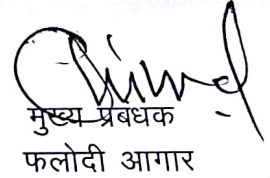 मुख्य प्रबंधक
फलोदी आगार